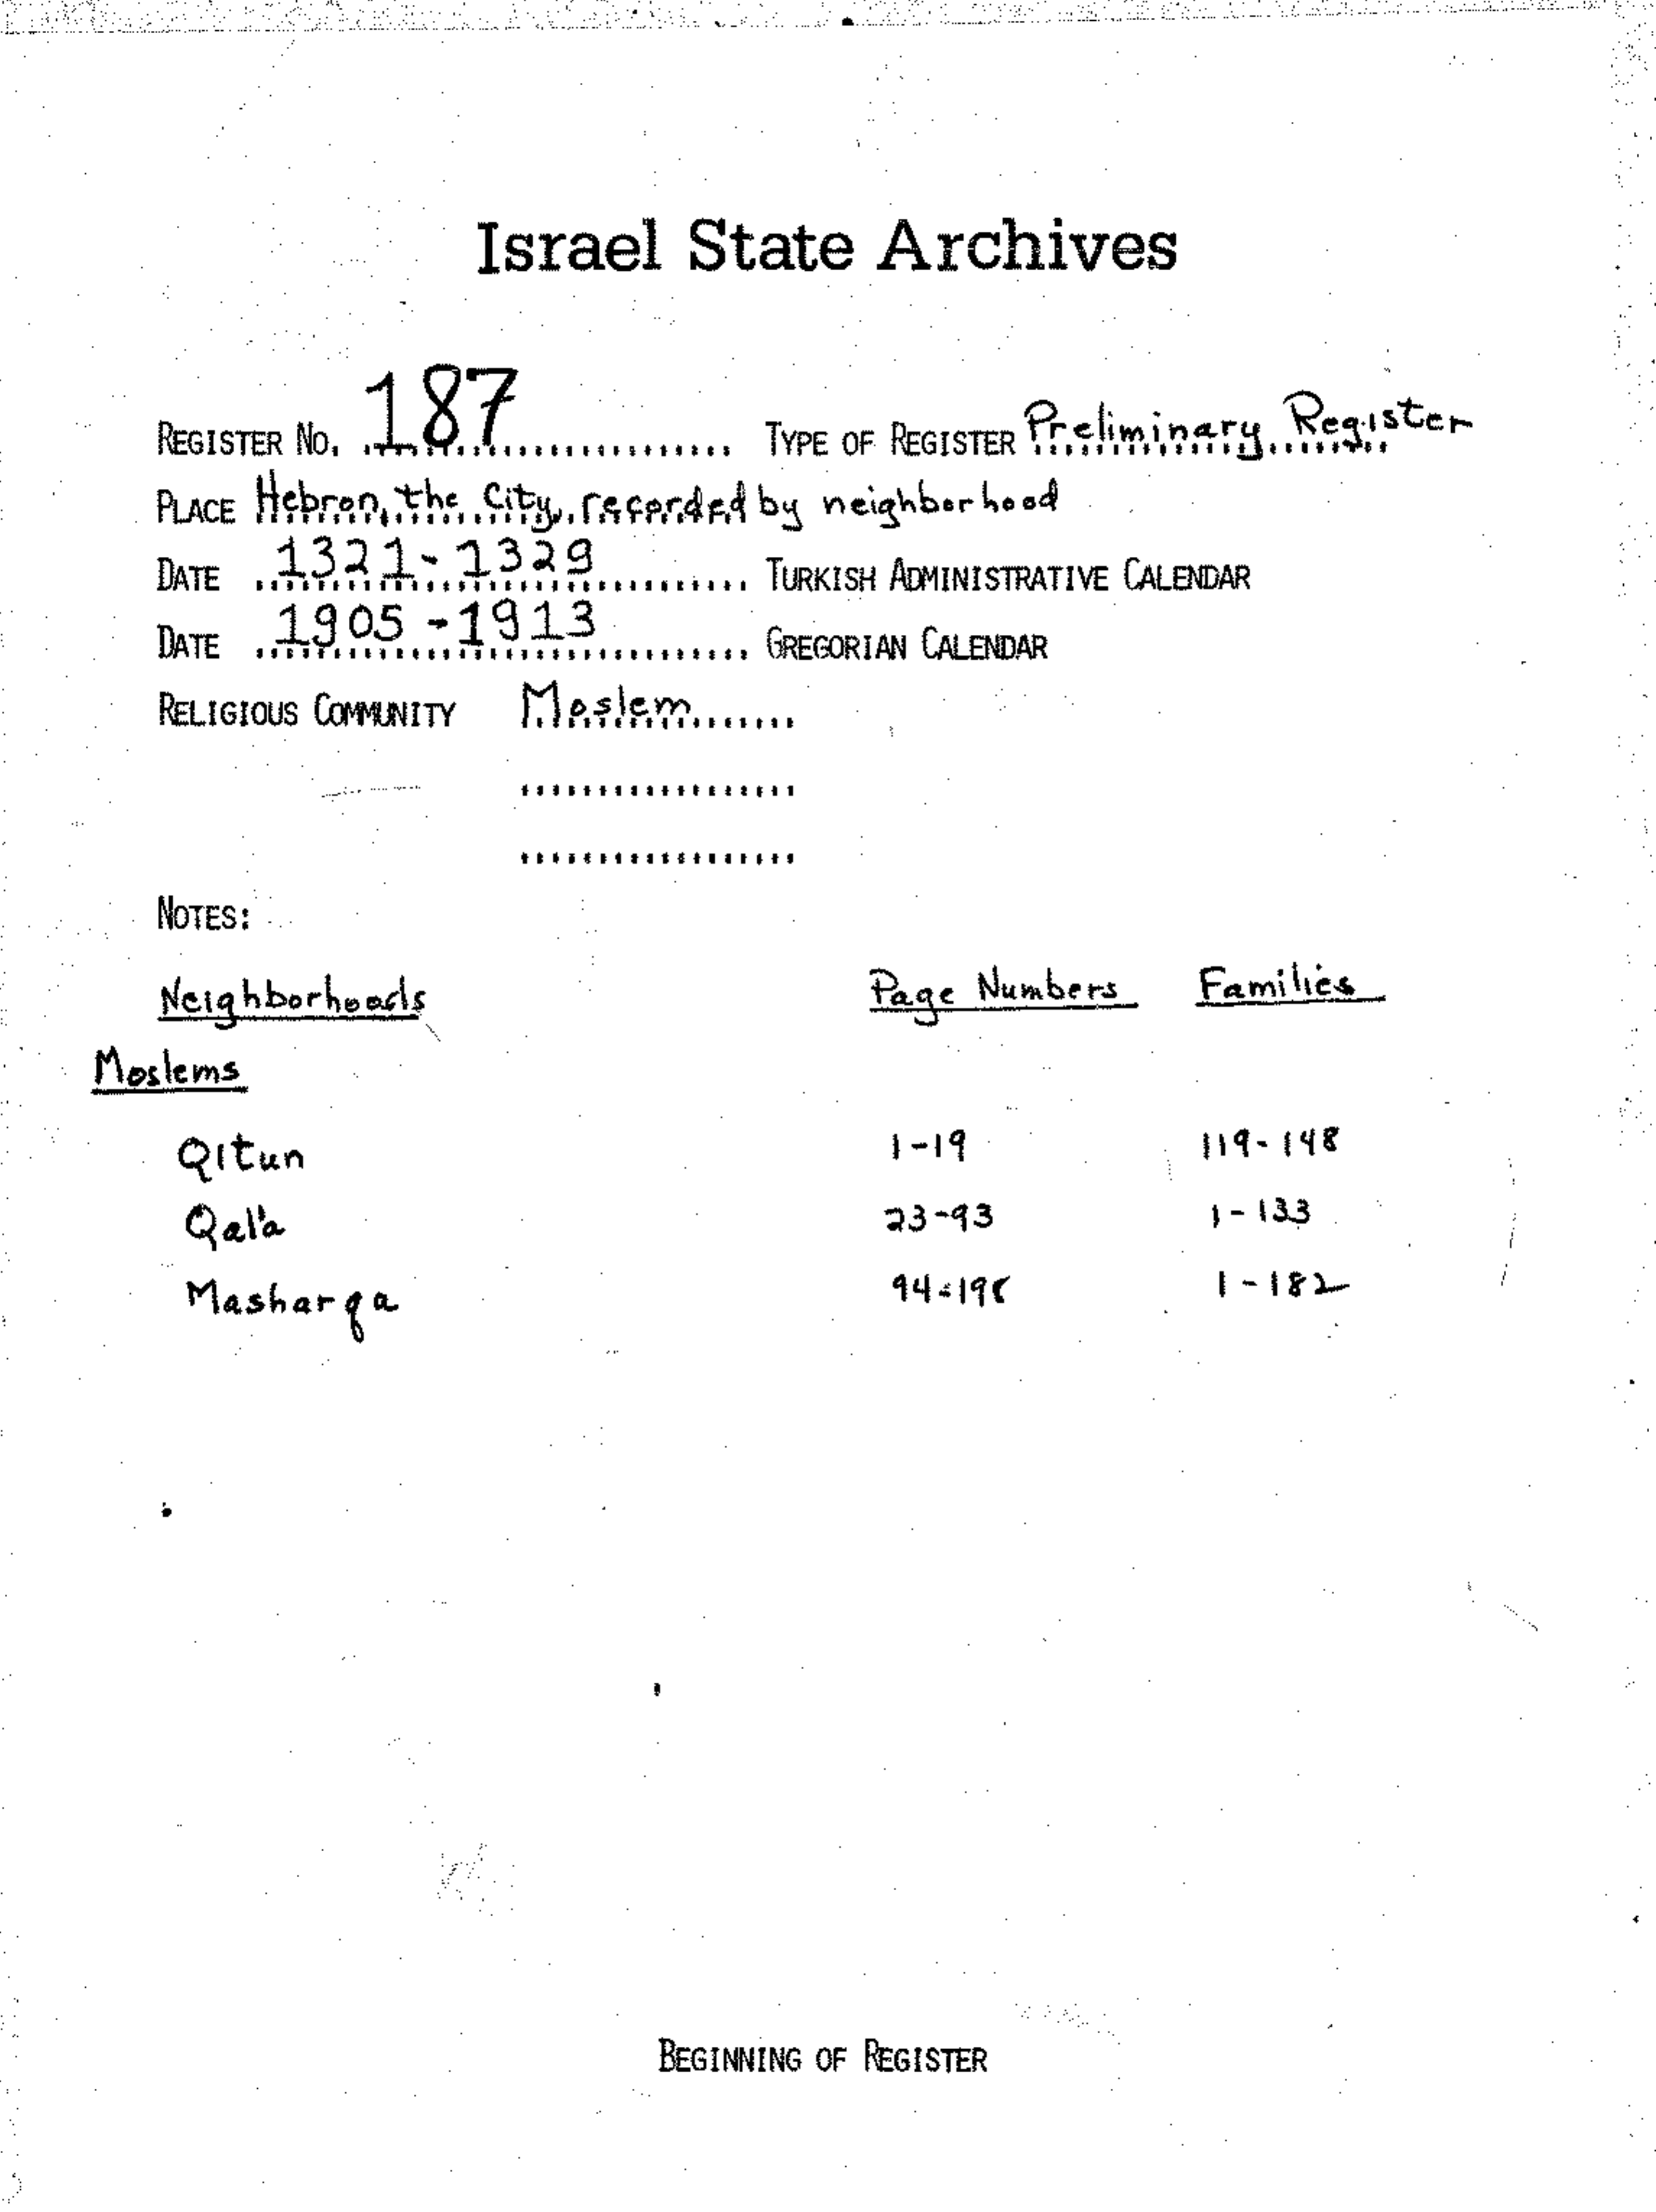 Israel State Archives
REGISTER NO. 187 TYPE OF REGISTER Preliminary Register
PLACE Hebron, the City, recorded by neighborhood
DATE 1321-1329 TURKISH ADMINISTRATIVE CALENDAR
DATE 1905-1913 GREGORIAN CALENDAR
RELIGIOUS COMMUNITY Moslem
NOTES:
Neighborhoods Page Numbers Families
Moslems
Qitun 1-19 119-148
Qal'a 23-93 1-133
Masharqa 1-182
BEGINNING OF REGISTER